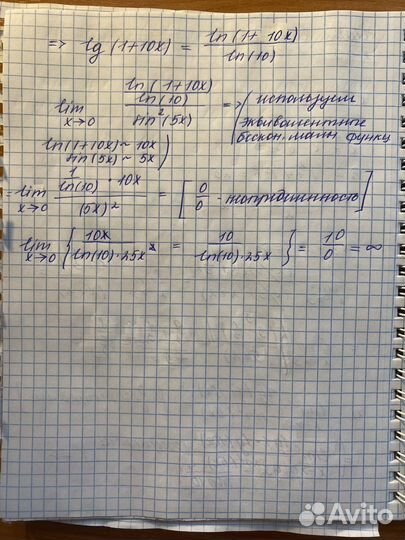 => lg (1+10x) = ln(1+10x) / ln(10)
lim x→0 ln(1+10x) / ln(10) / sin²(5x) => ( используем
эквивалентные
бескон. малы функц
ln(1+10x) ~ 10x
sin(5x) ~ 5x )
= lim x→0 1/ln(10) · 10x / (5x)² = [ 0/0 -
lim x→0 { 10x / ln(10)·25x² = 10 / ln(10)·25x } = 10/0 = ∞
Avito